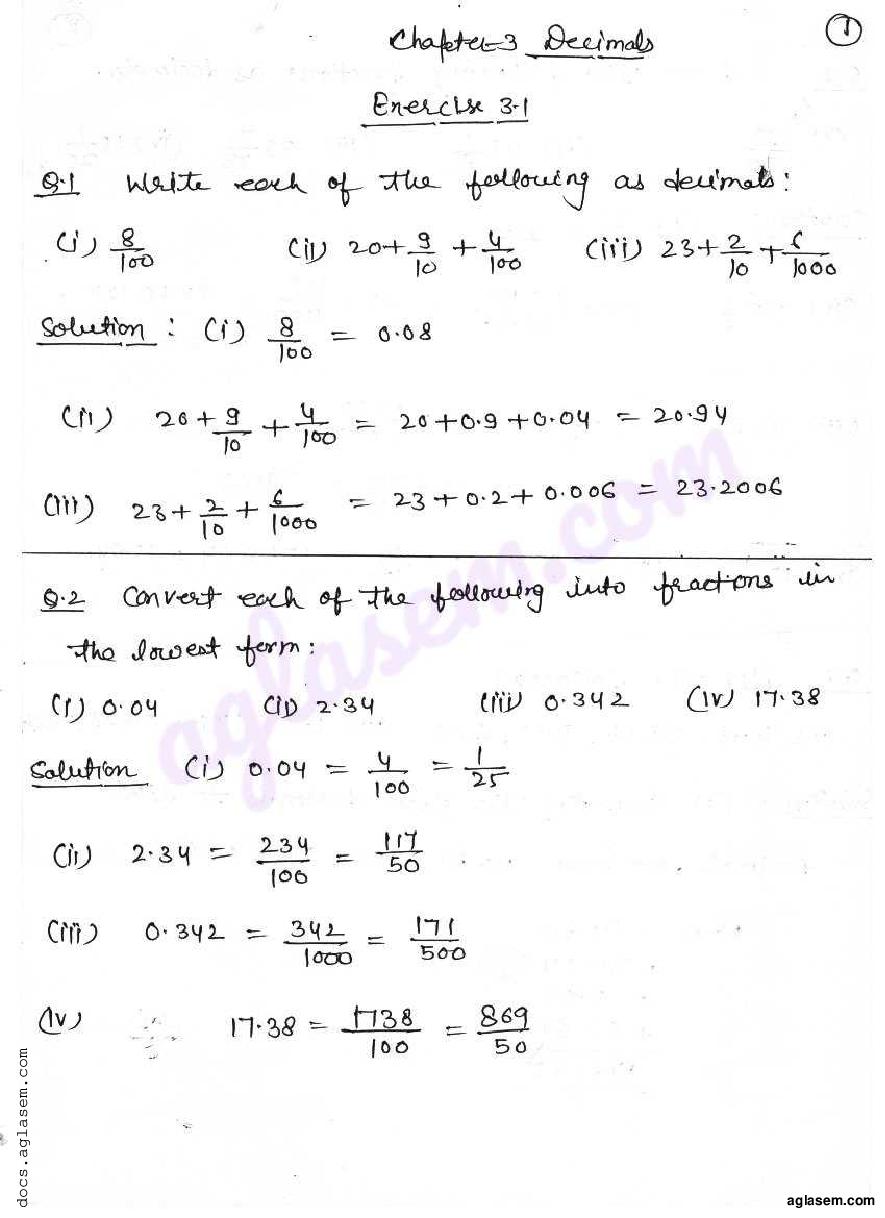 1
Chapter-3 Decimals
Exercise 3.1
Q.1 Write each of the following as decimals:
(i) 8/100 (ii) 20+9/10+4/100 (iii) 23+2/10+6/1000
Solution: (i) 8/100 = 0.08
(ii) 20+9/10+4/100 = 20+0.9+0.04 = 20.94
(iii) 23+2/10+6/1000 = 23+0.2+0.006 = 23.2006
Q.2 Convert each of the following into fractions in
the lowest form:
(i) 0.04 (ii) 2.34 (iii) 0.342 (iv) 17.38
Solution (i) 0.04 = 4/100 = 1/25
(ii) 2.34 = 234/100 = 117/50
(iii) 0.342 = 342/1000 = 171/500
(iv) 17.38 = 1738/100 = 869/50
aglasem.com
docs.aglasem.com
aglasem.com